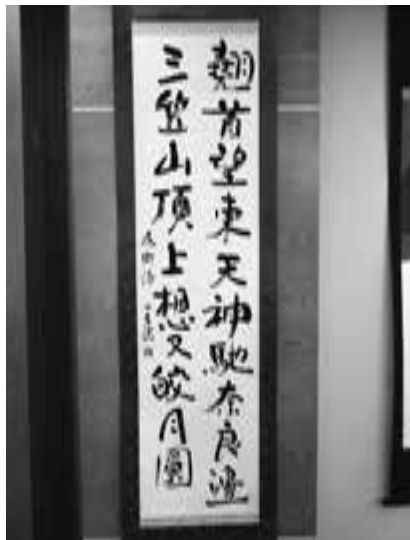 翹首望東天神馳奈良邊
三笠山頂上想又皎月圓